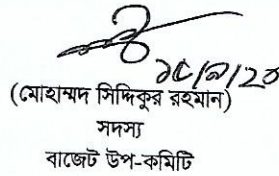 (মোহাম্মদ সিদ্দিকুর রহমান)
সদস্য
বাজেট উপ-কমিটি